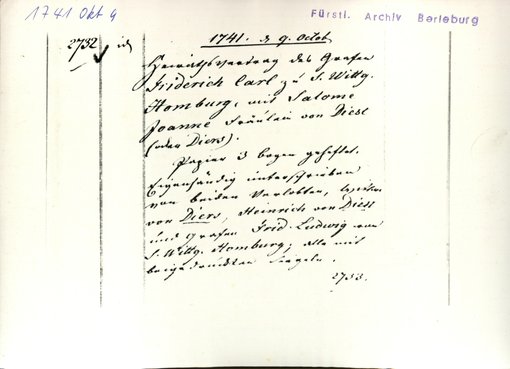 1741 Okt 9
Fürstl. Archiv Berleburg
2732
1741. d 9. Octob
Heirathsvertrag des Grafen
Friderich Carl zu S. Wittg.
Homburg, mit Salome
Joanne Fräulein von Diest
(oder Diers).
Papier 3 bogen geheftet.
Eigenhändig unterschrieben
von beiden Verlobten,
von Diers, Heinrich von Diest
und Grafen Frid. Ludwig von
S. Wittg. Homburg; alle mit
beigedruckten Siegeln.
2733.